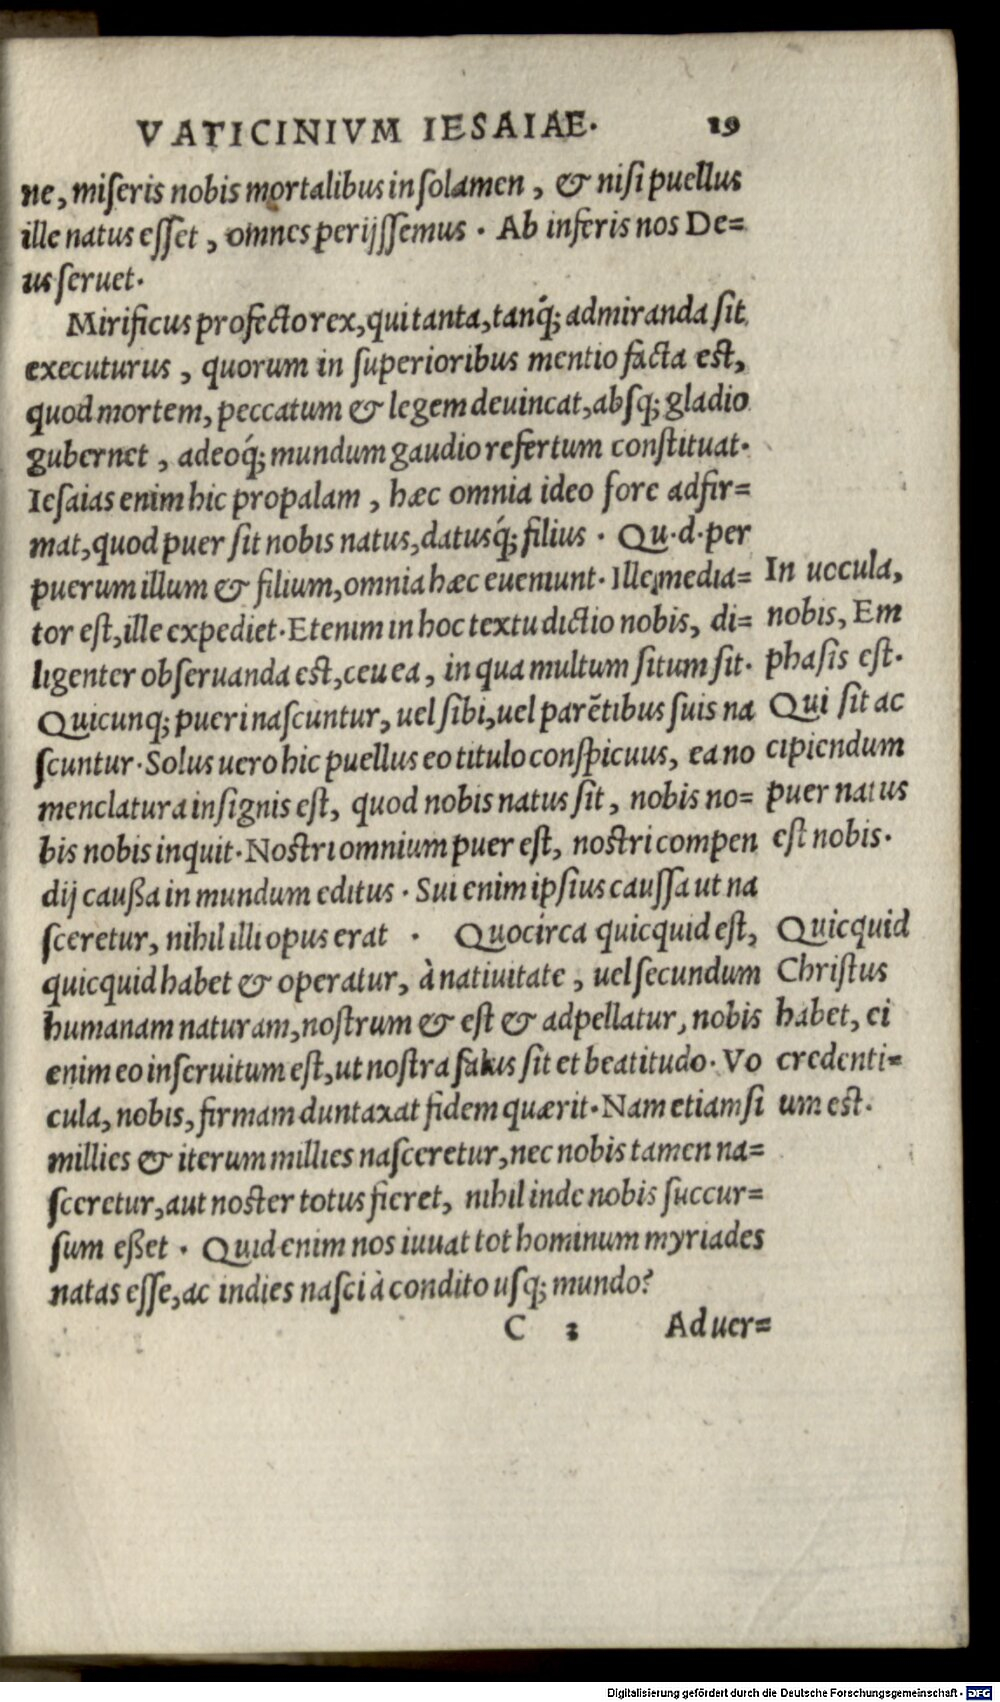 VATICINIVM IESAIAE. 19
ne, miseris nobis mortalibus in solamen, & nisi puellus
ille natus esset, omnes perijssemus. Ab inferis nos De=
us seruet.
Mirificus profecto rex, qui tanta, tanq́; admiranda sit
executurus, quorum in superioribus mentio facta est,
quod mortem, peccatum & legem deuincat, absq; gladio
gubernet, adeoq́; mundum gaudio refertum constituat.
Iesaias enim hic propalam, hæc omnia ideo fore adfir=
mat, quod puer sit nobis natus, datusq́; filius. Qu.d.per
puerum illum & filium, omnia hæc eueniunt. Ille media=
tor est, ille expediet. Etenim in hoc textu dictio nobis, di=
ligenter obseruanda est, ceu ea, in qua multum situm sit.
Quicunq; pueri nascuntur, uel sibi, uel parẽtibus suis na
scuntur. Solus uero hic puellus eo titulo conspicuus, ea no
menclatura insignis est, quod nobis natus sit, nobis no=
bis nobis inquit. Nostri omnium puer est, nostri compen
dij caußa in mundum editus. Sui enim ipsius caussa ut na
sceretur, nihil illi opus erat. Quocirca quicquid est,
quicquid habet & operatur, à natiuitate, uel secundum
humanam naturam, nostrum & est & adpellatur, nobis
enim eo inseruitum est, ut nostra salus sit et beatitudo. Vo
cula, nobis, firmam duntaxat fidem quærit. Nam etiamsi
millies & iterum millies nasceretur, nec nobis tamen na=
sceretur, aut noster totus fieret, nihil inde nobis succur=
sum eßet. Quid enim nos iuuat tot hominum myriades
natas esse, ac indies nasci à condito usq; mundo?
C 3 Aduer=
In uocula,
nobis, Em
phasis est.
Qui sit ac
cipiendum
puer natus
est nobis.
Quicquid
Christus
habet, ei
credenti=
um est.
Digitalisierung gefördert durch die Deutsche Forschungsgemeinschaft - DFG